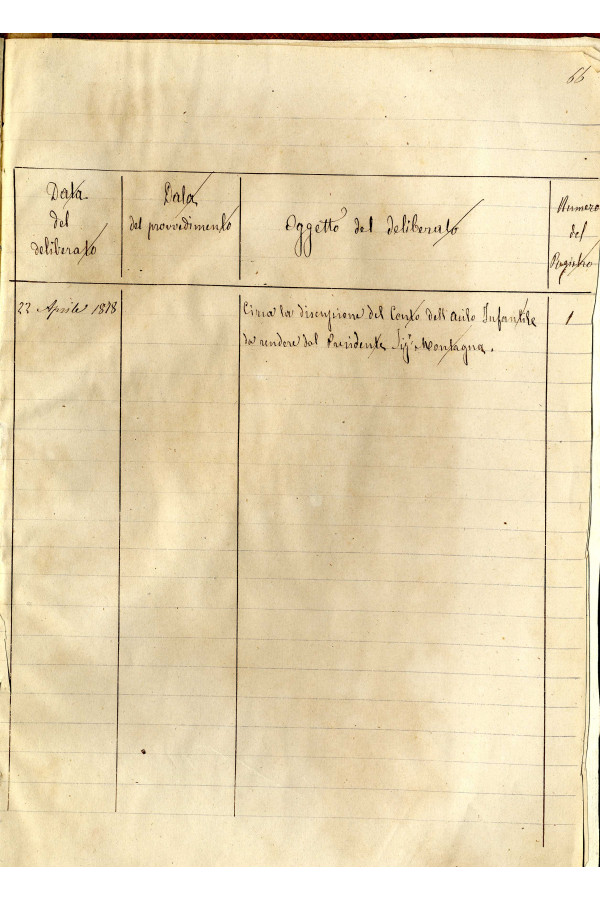 66
Data
del
deliberato
Data
del provvedimento
Oggetto del deliberato
Numero
del
Registro
22 Aprile 1878
Circa la discussione del Conto dell'Asilo Infantile
da rendere dal Presidente Sigr Montagna.
1